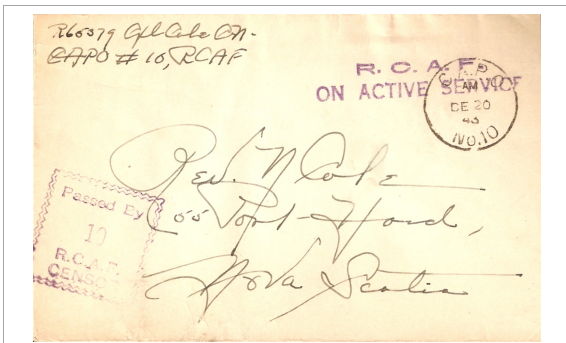 R65079 Cpl Cole C.N.
CAPO # 10, RCAF
R. C. A. F.
ON ACTIVE SERVICE
C.A.P.O
AM
DE 20
43
NO.10
Rev. N Cole
Port
Nova Scotia
Passed By
10
R.C.A.F.
CENSOR